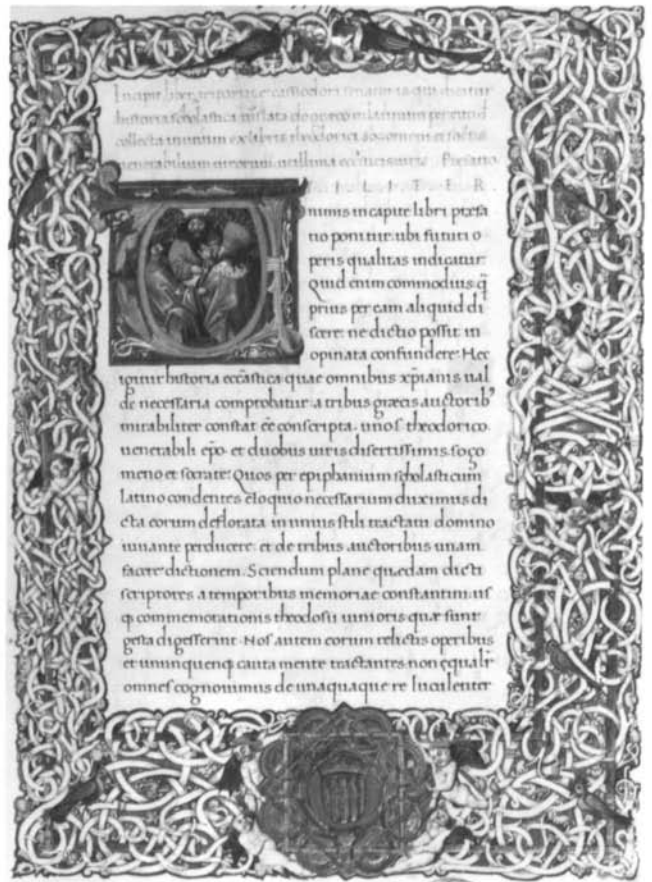 Incipit liber tripartite cassiodori senatoris qui vocatur
historia scholastica translata de greco in latinum per eund
collecta in unum ex libris theodorici sozomeni et socratis
venerabilium virorum Prefatio
I L I T E R
nimis in capite libri prefa
tio ponitur. ubi futuri o
peris qualitas indicatur.
Quid enim commodius q̄
prius per eam aliquid di
scere: ne dictio possit in
opinata confundere. Hec
igitur historia ecc̄astica quae omnibus xp̄ianis ual
de necessaria comprobatur. a tribus græcis auctorib⁹
mirabiliter constat eē conscripta. uno s. theodorico.
uenerabili ep̄o. et duobus uiris disertissimis. soço
meno et socrate. Quos per epiphanium scholasticum
latino condentes eloquio necessarium duximus di
cta eorum deflorata in unius stili tractatu domino
iuuante perducere. et de tribus auctoribus unam
facere dictionem. Sciendum plane quedam dicti
scriptores a temporibus memoriae constantini us
q commemorationis theodosii iunioris quæ sunt
gesta digesserint. Nos autem eorum relictis operibus
et unumquenq cauta mente tractantes. non equalr̄
omnes cognouimus de unaquaque re luculenter